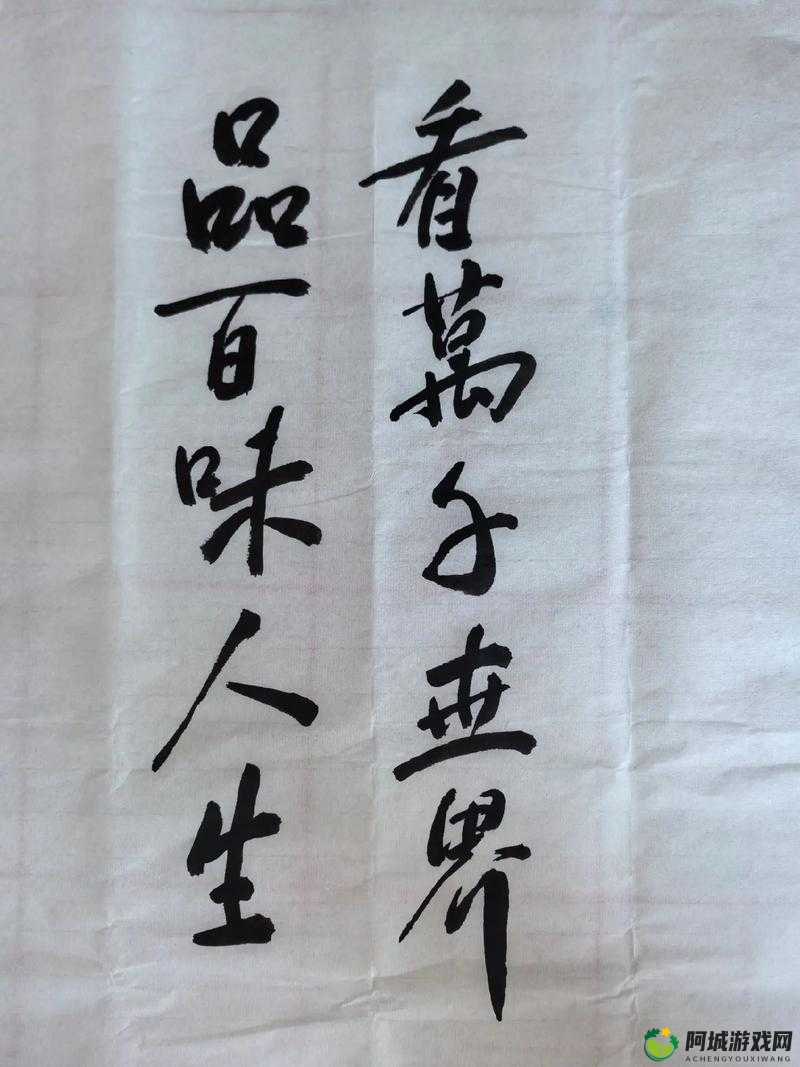 看萬千世界
品百味人生
阿城游戏网
ACHENGYOUXIWANG